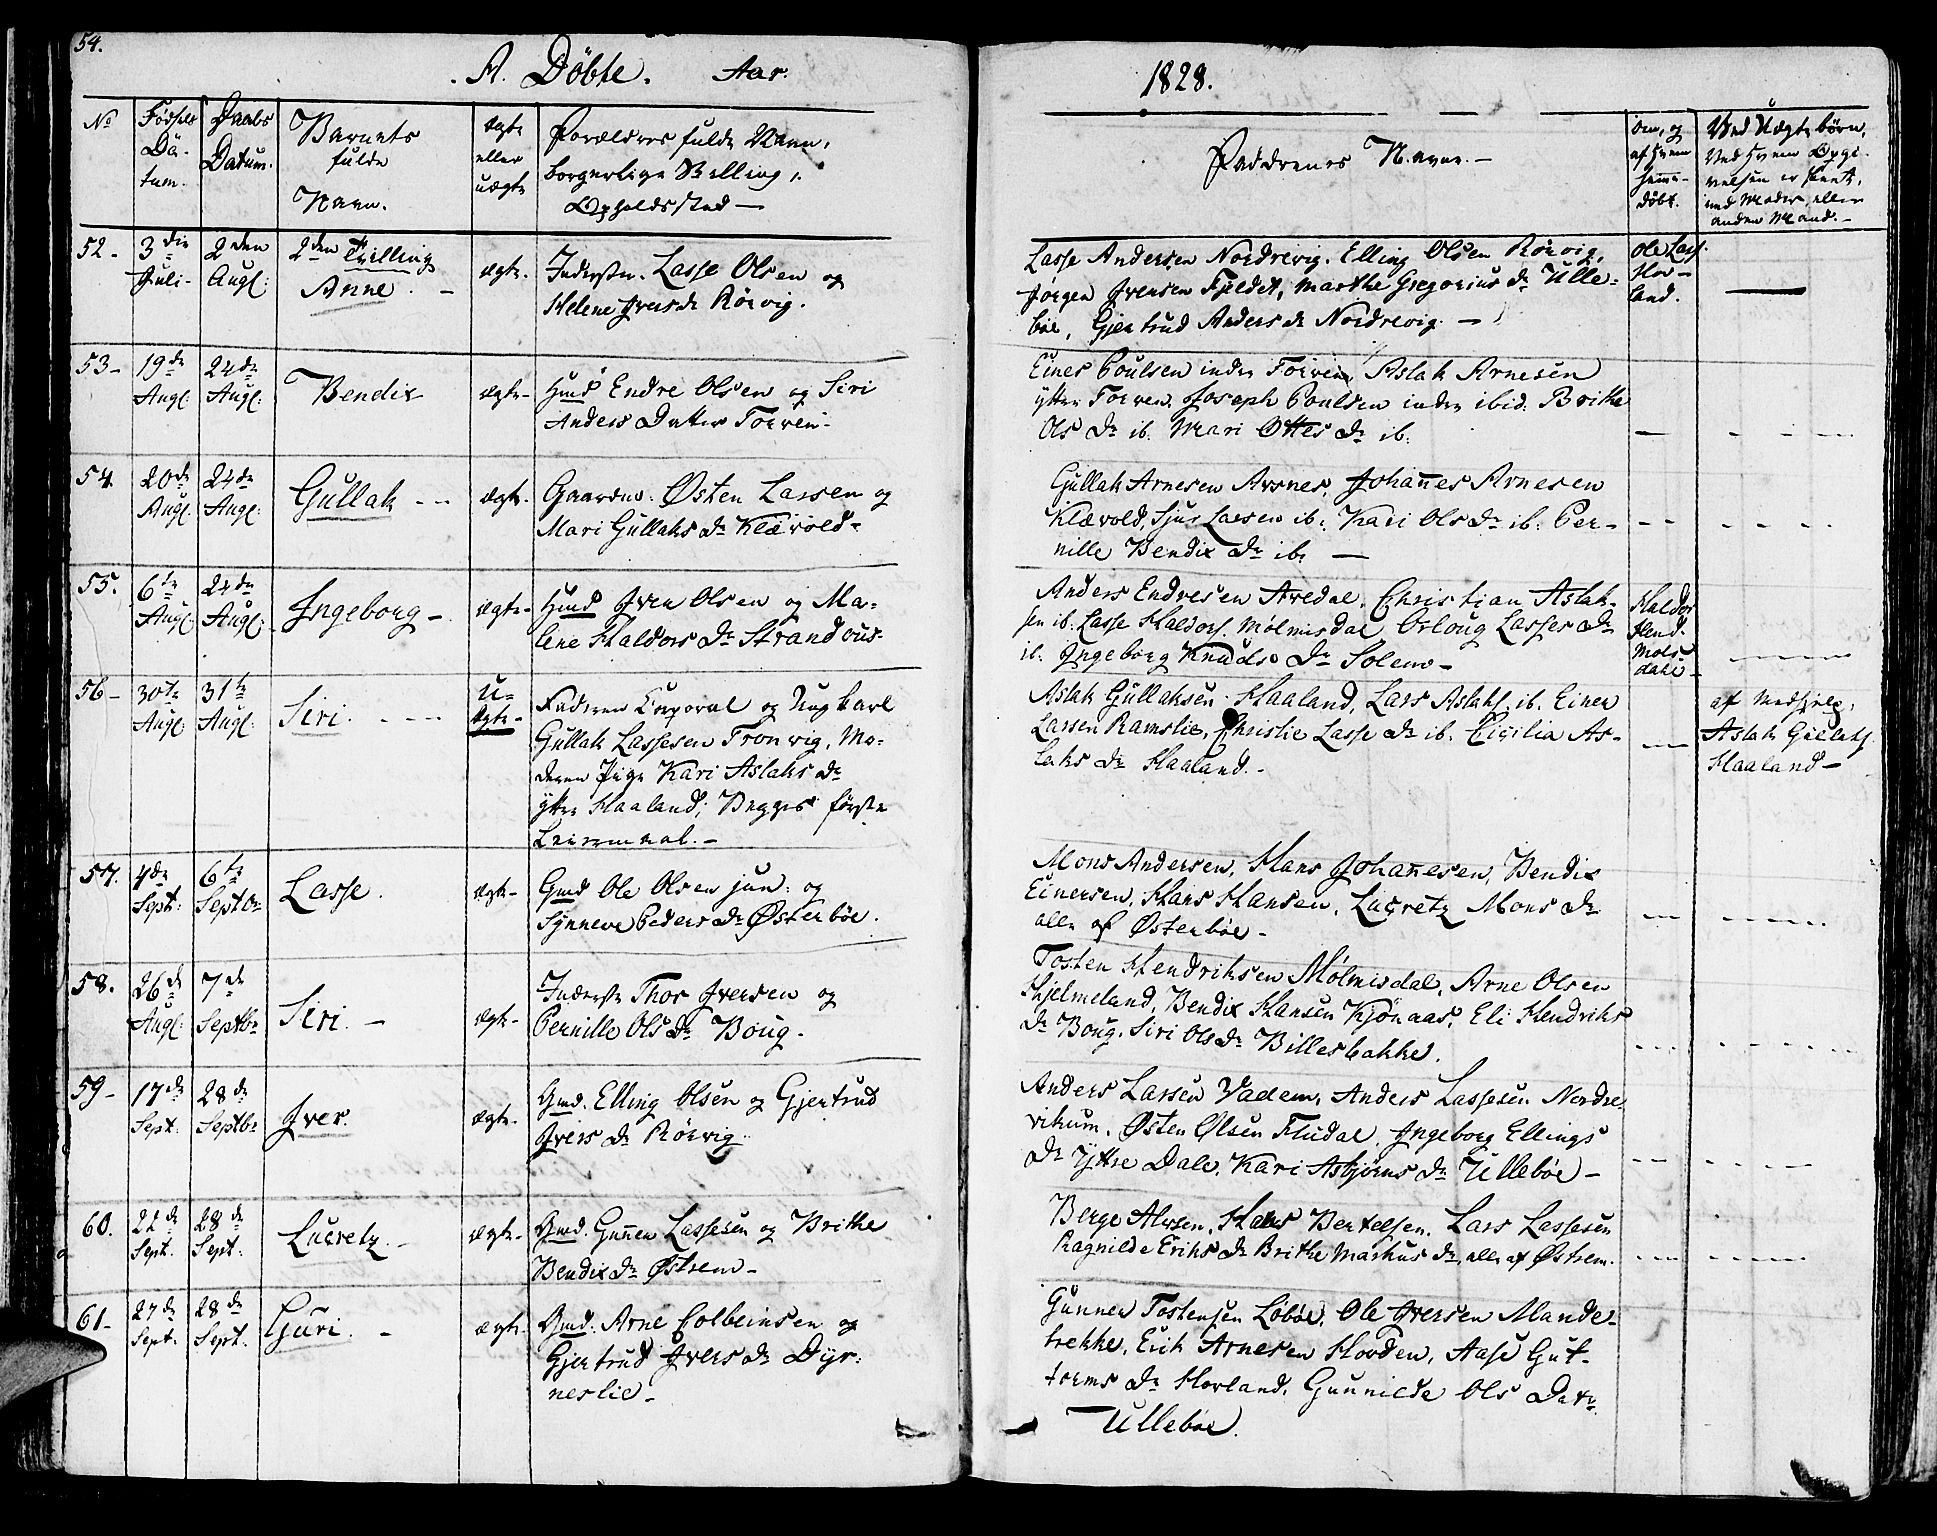 54.
A. Döbte. Aar.
1828.
No
Fødsels
Da-
tum.
Daabs
Datum.
Barnets
fulde
Navn.
ægte
eller
uægte
Forældres fulde Navn,
borgerlige Stilling,
Opholdssted —
Faddrenes Navne. —
om, og
af hvem
hjemme-
døbt.
Ved Uægte børn,
ved hvem Opgi-
velsen er skeet,
ved Moder, eller
anden Mand. —
52 - 3die Juli - 2den Augs: 2den Tvilling
Anne. — ægte.
Inderste. Lasse Olsen og
Helene Ivers dr Rörvig.
Lasse Andersen Nordrevig. Elling Olsen Rörvig,
Jörgen Iversen Fjeldet, Marthe Gregorius dr Ulle-
böe, Gjertrud Anders dr Nordrevig. —
Ole Lass.
Hov-
land.
53 - 19de Augs: 24de Augs: Bendix ægte -
Huusmd Endre Olsen og Siri
Anders Datter Torvin -
Einer Poulsen indre Torvin, Aslak Arnesen
yttre Torven. Joseph Poulsen indre ibid. Brithe
Ols dr ib. Mari Ottes dr ib.
54. 20de Augs: 24de Augs: Gullak - - ægte.
Gaardmd: Østen Larsen og
Mari Gullaks dr Klævold -
Gullak Arnesen Arsnes, Johannes Arnesen
Klævold, Sjur Larsen ib: Kari Ols dr ib: Per-
nille Bendix dr ib. —
55. 6te Augs: 24de Augs: Ingeborg - ægte -
Huusmd Iver Olsen og Ma-
lene Haldors dr Strandous -
Anders Endresen Aredal, Christian Aslak-
sen ib: Lasse Haldors. Mølmisdal, Orloug Lasses dr
ib: Ingeborg Knuds dr Solem -
Haldor
Hend.
Mols
dahl -
56 - 30te Augs: 31te Augs: Siri. - - - U-
ægte -
Faderen Corporal og Ungkarl
Gullak Lassesen Tronvig, Mo-
deren Pige Kari Aslaks dr
yttre Haaland; Begges første
Leiermaal. -
Aslak Gullaksen Haaland, Lars Aslaks. ib. Einer
Larsen Ramslie, Christie Lasse dr ib. Cicilia As-
laks dr Haaland. -
af Medhjelp.
Aslak Gullaks.
Haaland -
57. 4de Sept: 6te Septbr Lasse. ægte -
Gmd Ole Olsen jun: og
Synneve Peders dr Østerböe.
Mons Andersen, Hans Johannesen, Bendix
Einersen, Hans Hansen, Lucretz Mons dr
alle af Østerböe -
58. 26de Augs: 7de Septbr Siri. - ægte -
Inderste Thor Iversen og
Pernille Ols dr Boug.
Tosten Hendriksen Mölmisdal, Arne Olsen
Hjelmeland, Bendix Hansen Kjönaas, Eli Hendriks
dr Boug. Siri Ols dr Billesbakke.
59 - 17de Sept: 28de Septbr Iver. ægte -
Gmd. Elling Olsen og Gjertrud
Ivers dr Rörvig.
Anders Larsen Vadem, Anders Lassesen Nordre-
vikum, Østen Olsen Fludal, Ingeborg Ellings
dr Yttre Dale, Kari Asbjørns dr Ulleböe -
60. 22de Sept. 28de Sept: Lucretz - ægte -
Gmd. Gunner Lassesen og Brithe
Bendix dr Østrem -
Berge Alvsen, Hans Bertelsen. Lars Lassesen
Ragnilde Eriks dr Brithe Markus dr alle af Østrem.
61 - 27de Sept. 28de Sept. Guri. - ægte.
Gmd. Arne Colbeinsen og
Gjertrud Ivers dr Dyr-
neslie -
Gunner Tostensen Löböe, Ole Iversen Mande-
trekke, Erik Arnesen Hovden, Aase Gut-
torms dr Hovland, Gunnilde Ols Datr.
Ulleböe.